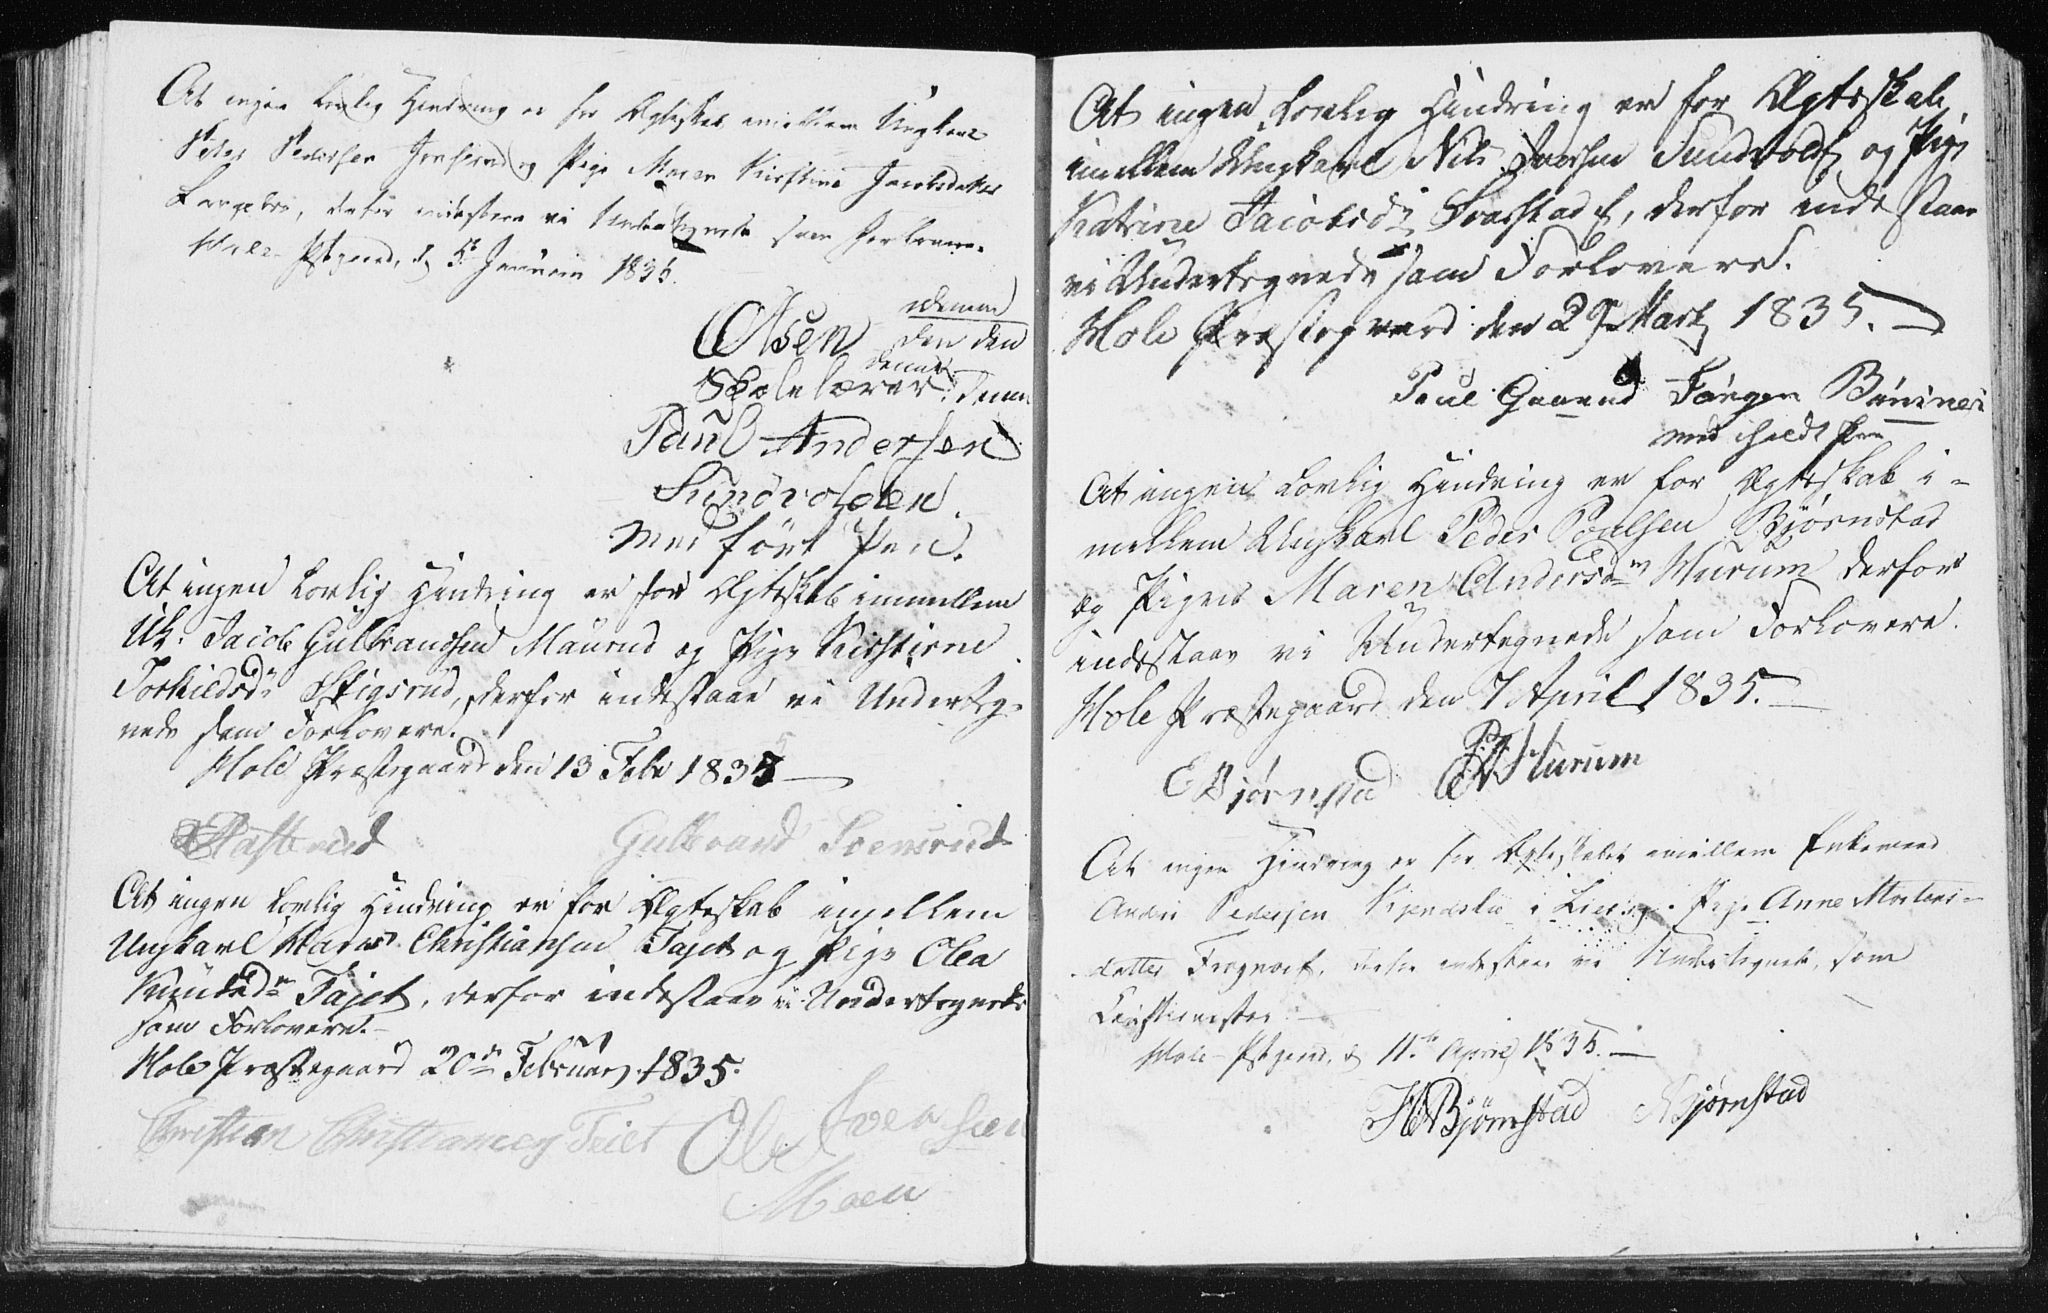 At ingen Lovlig Hindring er for Ægteskab imellem Ungkarl
Peder Pedersen Jonsrud og Pige Maren Kirstine Jacobsdatter
derfor indestaae vi Undertegnede som Forlovere.
Hole Pstgaard, d. 5te Januari 1835.
Olsen
Skolelærer
Paul Andersen
Sundvolden.
Med ført Pen.
At ingen Lovlig Hindring er for Ægteskab immellem
Uk: Jacob Gulbrandsen Maurud og Pige Kirstiene
Torkildsdr Stigsrud, derfor indestaae vi Underteg-
nede som Forlovere.
Hole Præstegaard den 13 Febr 1835
Gulbrand
At ingen Lovlig Hindring er for Ægteskab imellem
Ungkarl Hans Christiansen Fajet og Pige Olea
Knudsdr Fajet, derfor indestaae vi Undertegnede
som Forlovere.
Hole Præstegaard 20de Februar 1835.
Christian Christiansen Feiet Ole Iversen
Moen
At ingen Lovlig Hindring er for Ægteskab
imellem Ungkarl Nils Iversen Sundvold og Pige
Katrine Jacobsdr Svarstad, derfor indestaae
vi Undertegnede som Forlovere.
Hole Præstegaard den 29 Marts 1835.
Poul Gaarud Jørgen
med holdt Pen
At ingen Lovlig Hindring er for Ægteskab i-
mellem Ungkarl Peder Poulsen Bjørnstad
og Pigen Maren Andersdr Murum derfor
indestaae vi Undertegnede som Forlovere.
Hole Præstegaard den 7 April 1835.
E Bjørnstad Murum
At ingen Hindring er for Ægteskabet imellem Enkemand
Anders Pedersen i Lier og Pige Anne Mortens-
datter Frognør, derfor indestaae vi Undertegnede, som
Hole Pstgaard, d. 11te April 1835.
HBjørnstad Bjørnstad